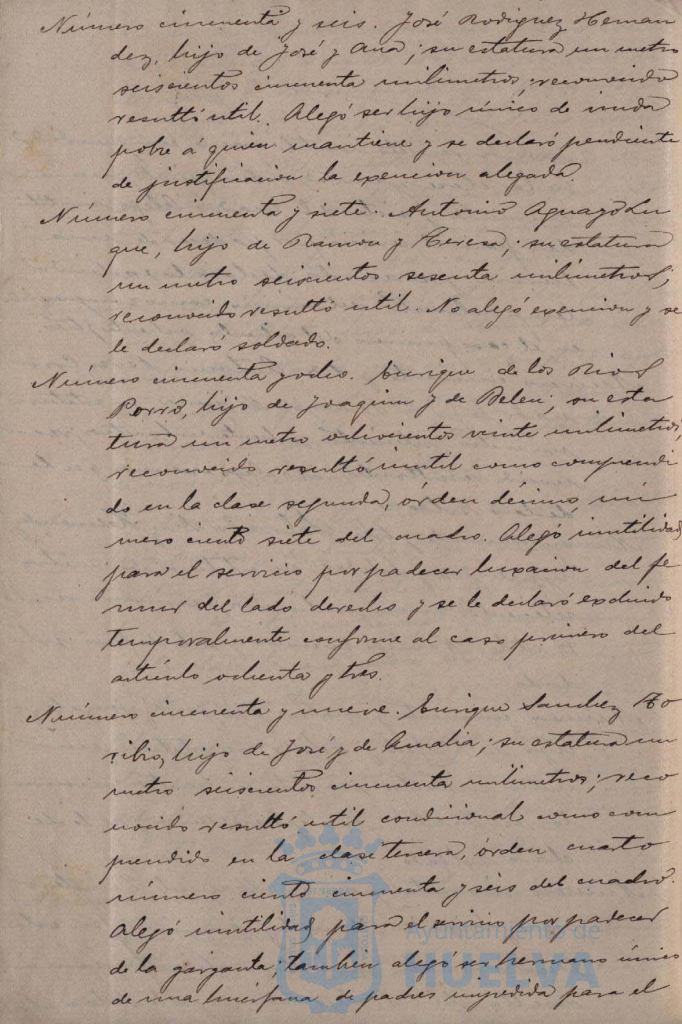 Número cincuenta y seis. José Rodriguez Hernan
dez, hijo de José y Ana; su estatura un metro
seiscientos cincuenta milimetros, reconocido
resultó util. Alegó ser hijo único de viuda
pobre á quien mantiene y se declaró pendiente
de justificacion la exencion alegada.
Número cincuenta y siete. Antonio Aguayo Lu
que, hijo de Ramon y Teresa; su estatura
un metro seiscientos sesenta milimetros;
reconocido resultó util. No alegó exencion y se
le declaró soldado.
Número cincuenta y ocho. Enrique de los Rios
Porro, hijo de Joaquin y de Belen; su esta
tura un metro ochocientos veinte milimetros,
reconocido resultó inutil como comprendi
do en la clase segunda, órden décimo, nú
mero ciento siete del cuadro. Alegó inutilidad
para el servicio por padecer luxacion del fe
mur del lado derecho y se le declaró excluido
temporalmente conforme al caso primero del
artículo ochenta y tres.
Número cincuenta y nueve. Enrique Sanchez To
ribio, hijo de José y de Amalia; su estatura un
metro seiscientos cincuenta milimetros; reco
nocido resultó util condicional como com
prendido en la clase tercera, órden cuarto
número ciento cincuenta y seis del cuadro.
Alegó inutilidad para el servicio por padecer
de la garganta; tambien alegó ser hermano único
de una huérfana de padres impedida para el
Ayuntamiento de
HUELVA